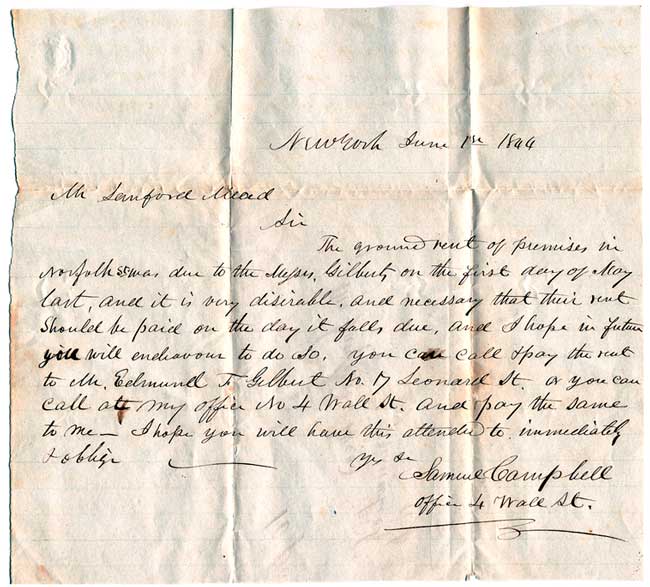 New York June 1st 1844
Mr Sanford Mead
Sir
The ground rent of premises in
Norfolk St was due to the Messrs. Gilberts on the first day of May
last, and it is very disirable, and necessary that their rent
Should be paid on the day it falls due, and I hope in future
you will endeavour to do so. you can call & pay the rent
to Mr. Edmund F. Gilbert No. 17 Leonard St. or you can
call at my office No 4 Wall St. and pay the same
to me — I hope you will have this attended to immediately
& oblige
Samuel Campbell
office 4 Wall St.